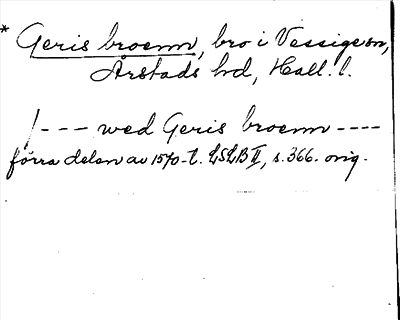 * Geris broenn, bro i Vessige sn,
Årstads hd, Hall. l.
/--- wed Geris broenn ----
förra delen av 1570-t. LSLB II, s. 366. orig.